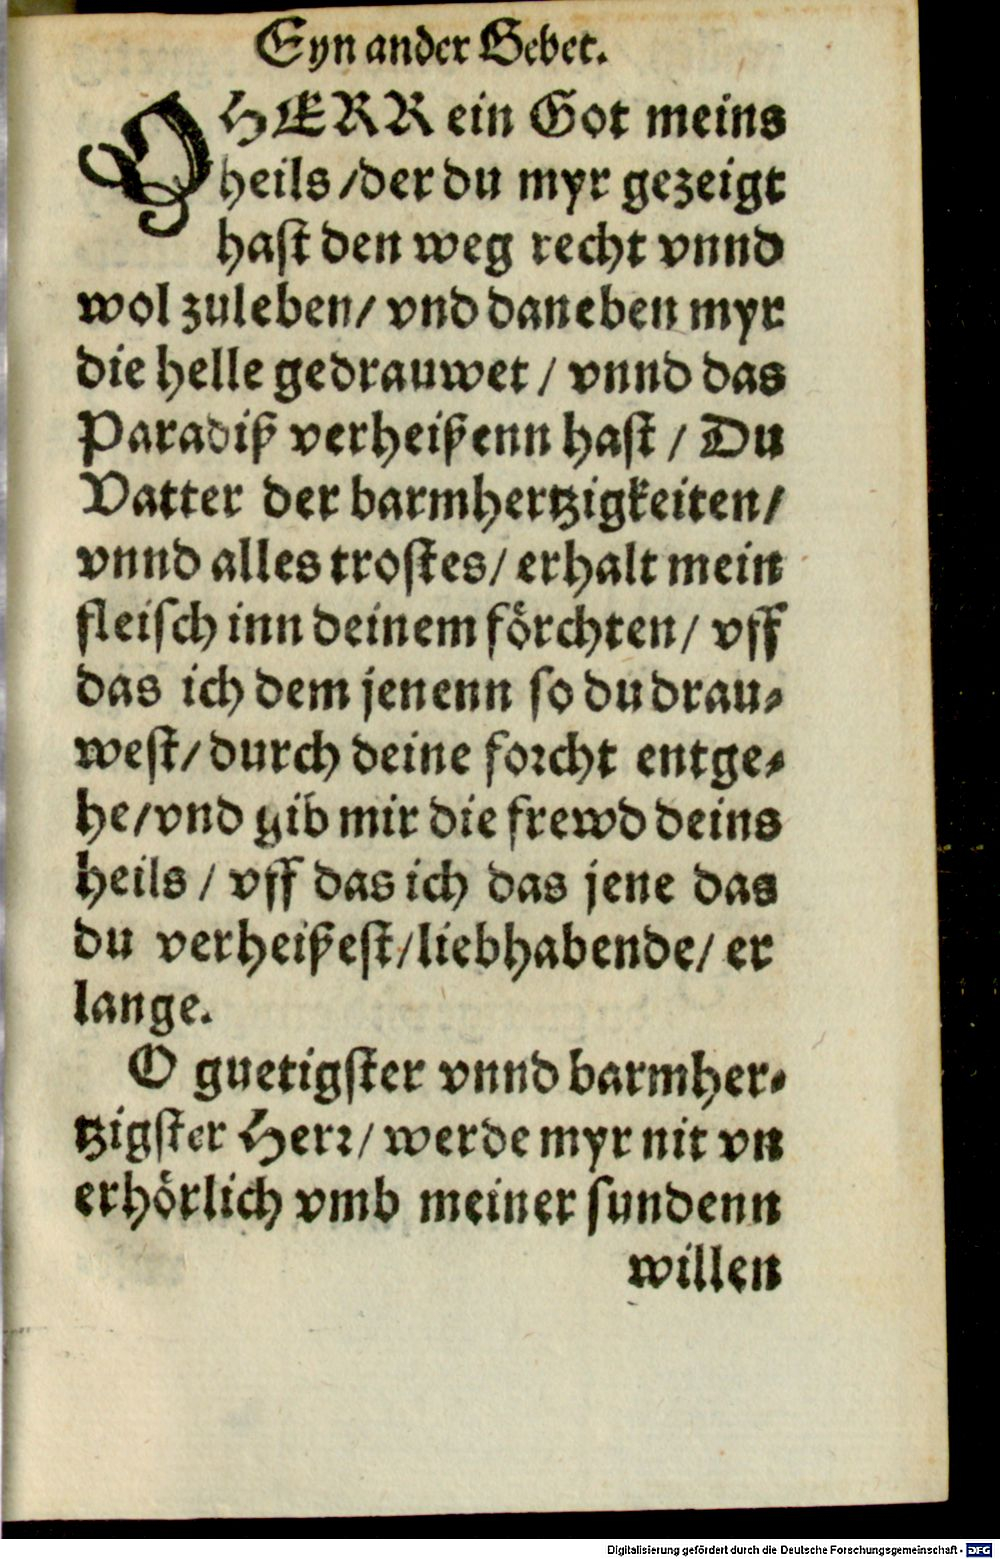 Eyn ander Gebet.
O HERR ein Got meins
heils /der du myr gezeigt
hast den weg recht vnnd
wol zuleben/ vnd daneben myr
die helle gedrauwet / vnnd das
Paradiß verheißenn hast / Du
Vatter der barmhertzigkeiten/
vnnd alles trostes/ erhalt mein
fleisch inn deinem förchten/ vff
das ich dem jenenn so du drau-
west/ durch deine forcht entge-
he/vnd gib mir die frewd deins
heils / vff das ich das jene das
du verheißest/liebhabende/ er
lange.
O guetigster vnnd barmher-
tzigster Herr/ werde myr nit vn
erhörlich vmb meiner sundenn
willen
Digitalisierung gefördert durch die Deutsche Forschungsgemeinschaft - DFG